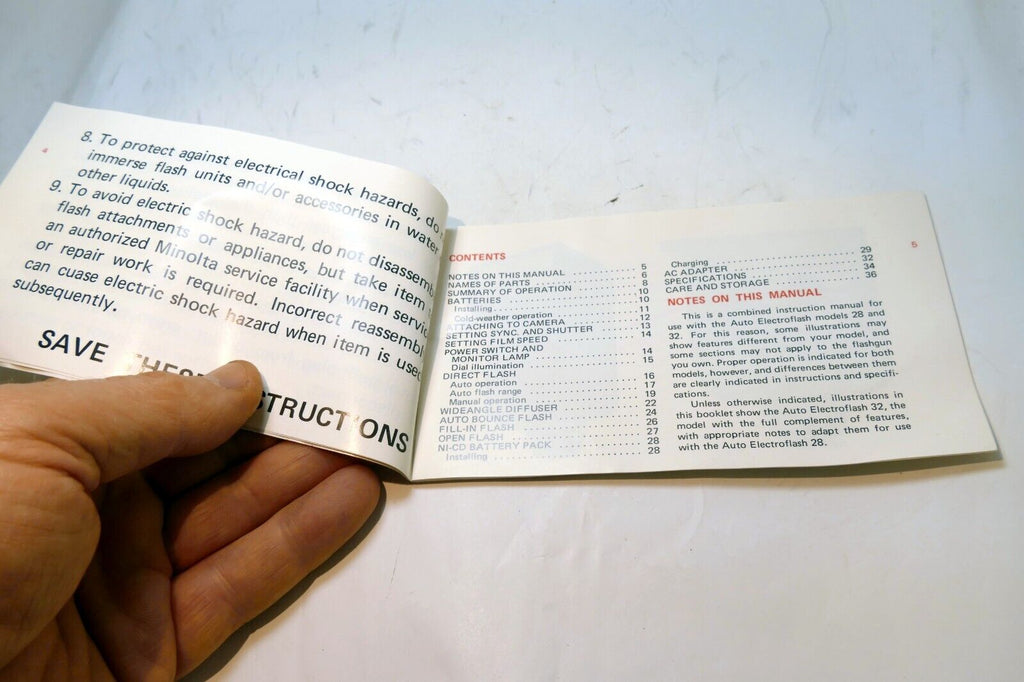 4
8. To protect against electrical shock hazards, do
immerse flash units and/or accessories in water
other liquids.
9. To avoid electric shock hazard, do not disassemb
flash attachments or appliances, but take item
an authorized Minolta service facility when servic
or repair work is required. Incorrect reassembl
can cuase electric shock hazard when item is used
subsequently.
SAVE THESE INSTRUCTIONS
5
CONTENTS
NOTES ON THIS MANUAL 5
NAMES OF PARTS 6
SUMMARY OF OPERATION 8
BATTERIES 10
Installing 10
Cold-weather operation 11
ATTACHING TO CAMERA 12
SETTING SYNC. AND SHUTTER 13
SETTING FILM SPEED 14
POWER SWITCH AND
MONITOR LAMP 14
Dial illumination 15
DIRECT FLASH
Auto operation 16
Auto flash range 17
Manual operation 19
WIDEANGLE DIFFUSER 22
AUTO BOUNCE FLASH 24
FILL-IN FLASH 26
OPEN FLASH 27
NI-CD BATTERY PACK 28
Installing 28
Charging 29
AC ADAPTER 32
SPECIFICATIONS 34
CARE AND STORAGE 36
NOTES ON THIS MANUAL
This is a combined instruction manual for
use with the Auto Electroflash models 28 and
32. For this reason, some illustrations may
show features different from your model, and
some sections may not apply to the flashgun
you own. Proper operation is indicated for both
models, however, and differences between them
are clearly indicated in instructions and specifi-
cations.
Unless otherwise indicated, illustrations in
this booklet show the Auto Electroflash 32, the
model with the full complement of features,
with appropriate notes to adapt them for use
with the Auto Electroflash 28.